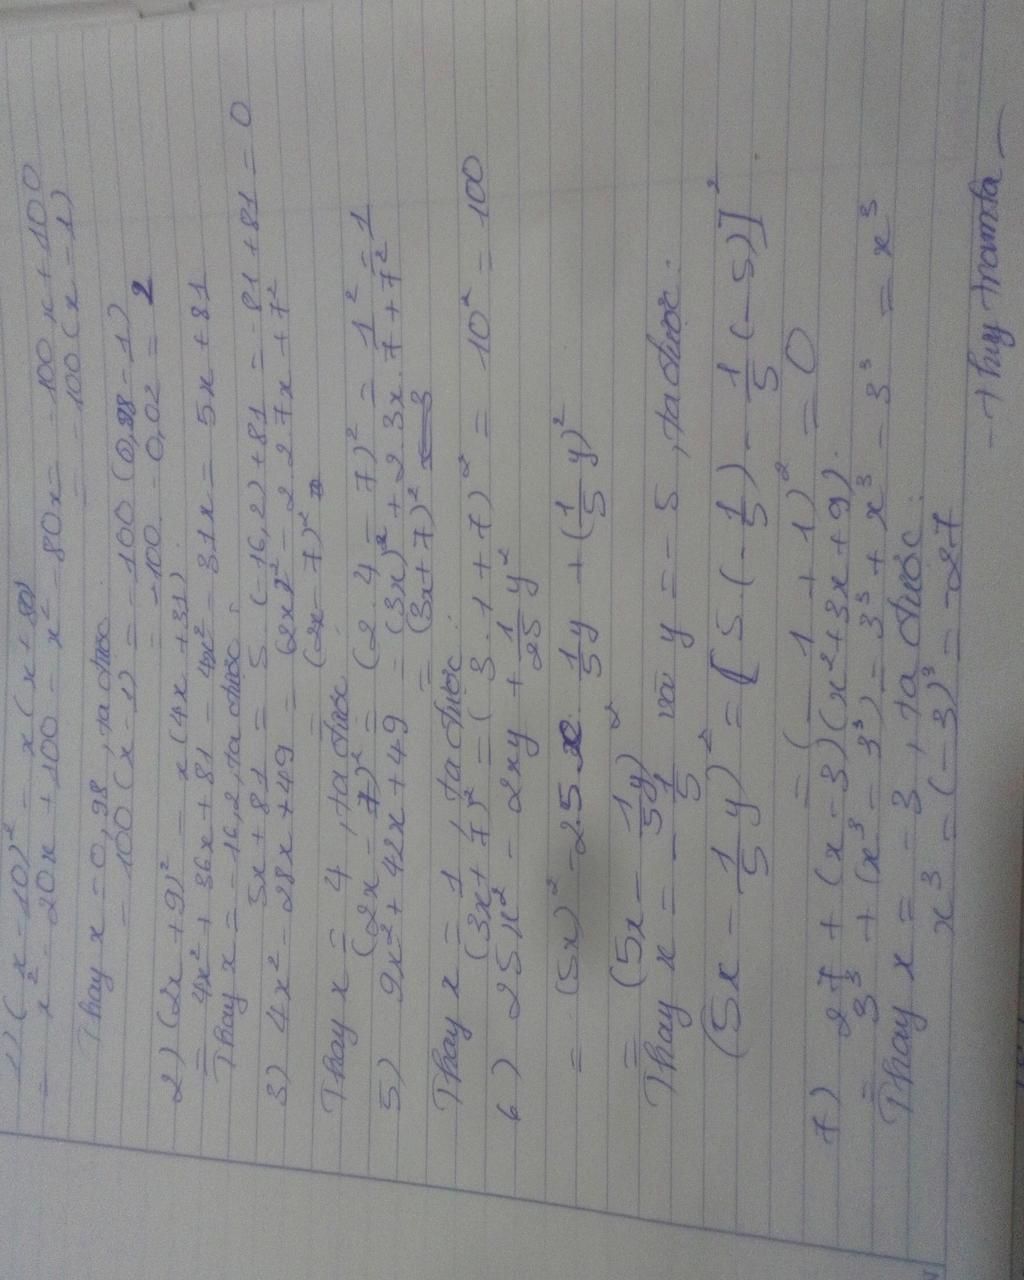 1) (x - 10)² - x(x + 80)
= x² - 20x + 100 - x² - 80x = - 100x + 100
= - 100(x - 1)
Thay x = 0,98, ta được
- 100(x - 1) = - 100(0,98 - 1)
= -100. - 0,02 = 2
2) (2x + 9)² - x(4x + 31)
= 4x² + 36x + 81 - 4x² - 31x = 5x + 81
Thay x = -16,2, ta được:
5x + 81 = 5. (-16,2) + 81 = - 81 + 81 = 0
3) 4x² - 28x + 49 = (2x)² - 2 2 7x + 7²
= (2x - 7)²
Thay x = 4, ta được
(2x - 7)² = (2.4 - 7)² = 1² = 1
5) 9x² + 42x + 49 = (3x)² + 2 3x. 7 + 7²
= (3x + 7)²
Thay x = 1, ta được:
(3x + 7)² = (3.1 + 7)² = 10² = 100
6) 25x² - 2xy + 1/25 y²
= (5x)² - 2.5x. 1/5 y + (1/5 y)²
= (5x - 1/5 y)²
Thay x = - 1/5 và y = - 5, ta được:
(5x - 1/5 y)² = [5(- 1/5) - 1/5 (- 5)]²
= (- 1 + 1)² = 0
7) 27 + (x - 3)(x² + 3x + 9).
= 3³ + (x³ - 3³) = 3³ + x³ - 3³ = x³
Thay x = - 3, ta được:
x³ = (- 3)³ = - 27